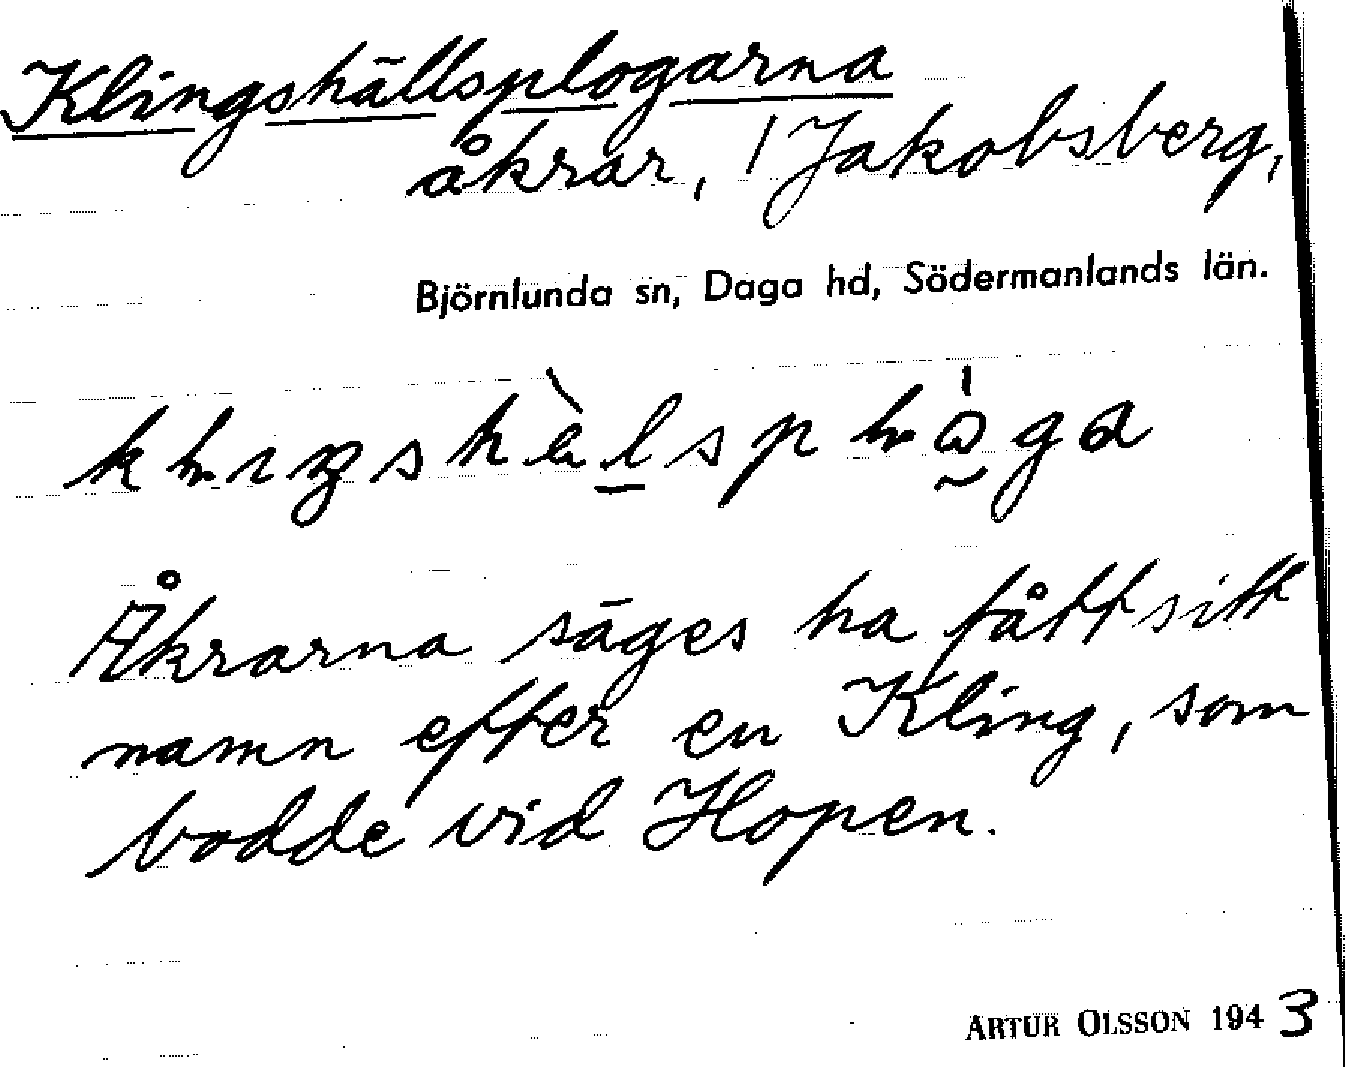 Klingshällsplogarna
åkrar, 1 Jakobsberg,
Björnlunda sn, Daga hd, Södermanlands län.
Åkrarna säges ha fått sitt
namn efter en Kling, som
bodde vid Hopen.
ARTUR OLSSON 1943